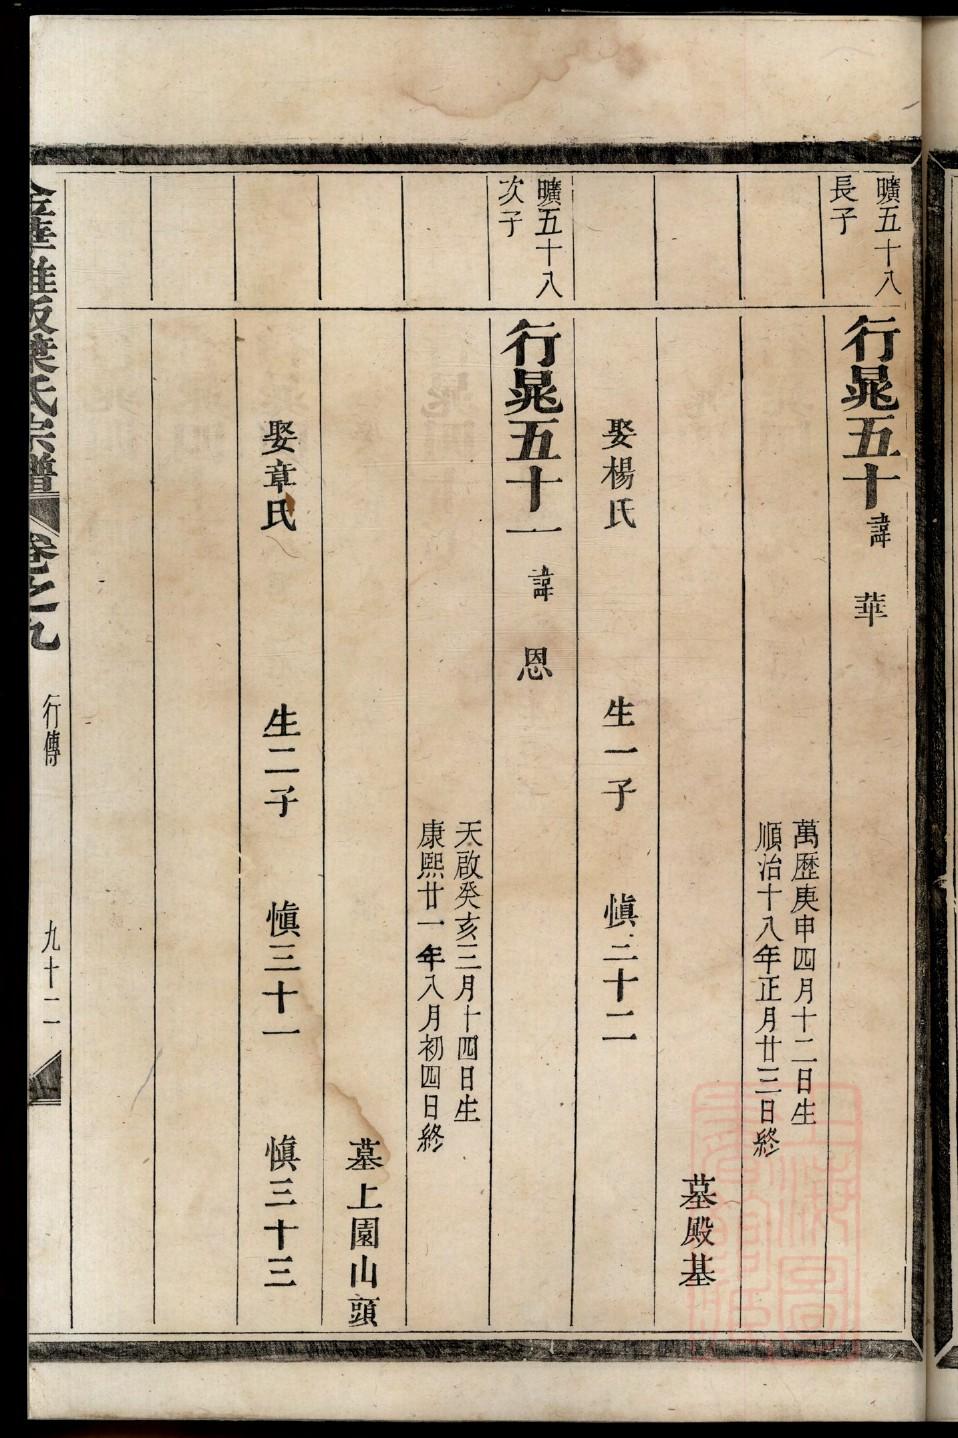 曠五十八
長子
行晁五十 諱 華
萬歷庚申四月十二日生
順治十八年正月廿三日終
墓殿基
娶楊氏 生一子 愼三十二
曠五十八
次子
行晁五十一 諱 恩
天啟癸亥三月十四日生
康熙廿一年八月初四日終
墓上園山頭
娶章氏 生二子 愼三十一 愼三十三
金華 葉氏宗譜 卷之九 行傳 九十二